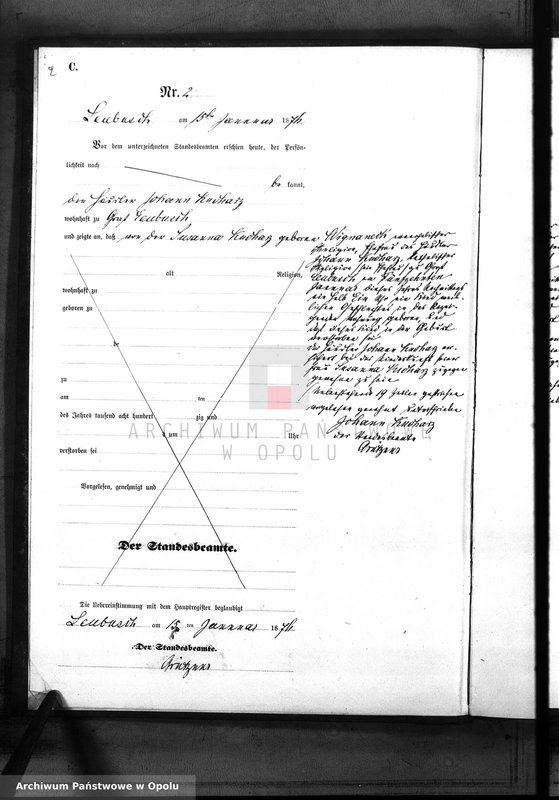 2
C.
Nr. 2
Leubusch am 15ten Januar 1876.
Vor dem unterzeichneten Standesbeamten erschien heute, der Persön-
lichkeit nach
be kannt,
der Häusler Johann Kucharz
wohnhaft zu Groß Leubusch
und zeigte an, daß von der Susanna Kucharz geborene
Religion, Ehefrau des Häusler
Johann Kucharz, katholischer
Religion
Leubusch am fünfzehnten
Januar dieses Jahres Vormittags
ein halb Ein Uhr ein Kind weib-
lichen Geschlechtes in der
Wohnung geboren, und
daß dieses Kind in der Geburt
verstorben sei
der Häusler Johann Kucharz
bei der Niederkunft seiner
Frau Susanna Kucharz zugegen
gewesen zu sein
19 Zeilen gestrichen
vorgelesen genehmigt unterschrieben
Johann Kucharz
der Standesbeamte
alt Religion,
wohnhaft zu
geboren zu
be
zu
am ten
des Jahres tausend acht hundert zig und
um Uhr
verstorben sei
Vorgelesen, genehmigt und
Der Standesbeamte.
Die Uebereinstimmung mit dem Hauptregister beglaubigt
Leubusch am 15 ten Januar 1876.
Der Standesbeamte.
ARCHIWUM PAŃSTWOWE
W OPOLU
Archiwum Państwowe w Opolu